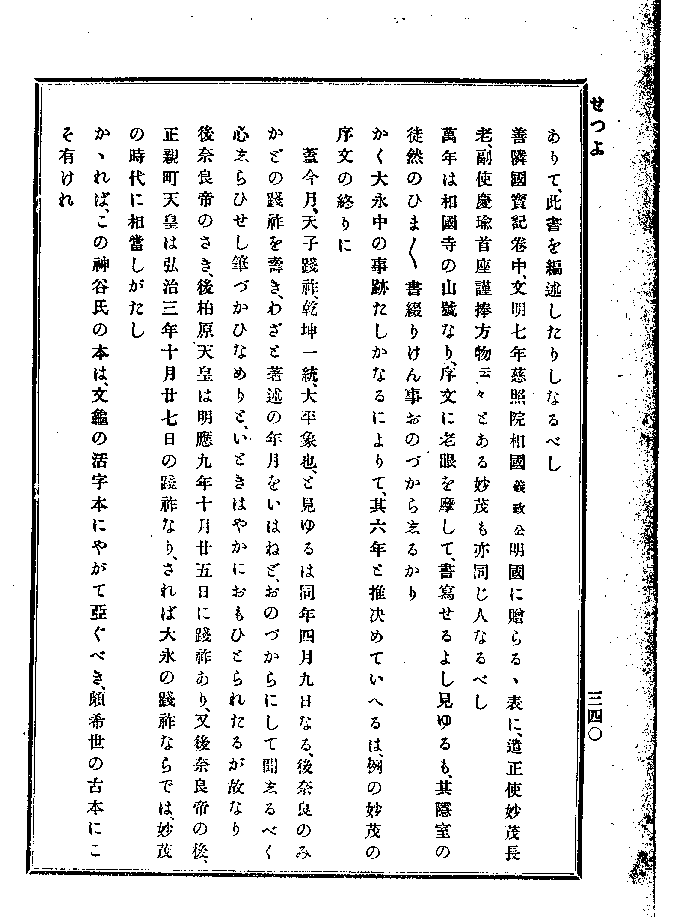 せつよ
三四〇
ありて、此書を編述したりしなるべし
善隣國寳記卷中、文明七年慈照院相國義政公明國に贈らるゝ表に、遣正使妙茂長
老、副使慶瑜首座謹捧方物云々とある妙茂も亦同じ人なるべし
萬年は相國寺の山號なり、序文に老眼を摩して、書寫せるよし見ゆるも、其隱室の
徒然のひま〳〵書綴りけん事おのづから志るかり
かく大永中の事跡たしかなるによりて、其六年と推決めていへるは、例の妙茂の
序文の終りに
蓋今月、天子踐祚、乾坤一統、大平象也、と見ゆるは同年四月九日なる、後奈良のみ
かどの踐祚を壽き、わざと著述の年月をいはねど、おのづからにして聞志るべく
心志らひせし筆づかひなめりと、いときはやかにおもひとられたるが故なり
後奈良帝のさき、後柏原天皇は明應九年十月廿五日に踐祚あり、又後奈良帝の後、
正親町天皇は弘治三年十月廿七日の踐祚なり、されば大永の踐祚ならでは、妙茂
の時代に相當しがたし
かゝれば、この神谷氏の本は、文龜の活字本にやがて亞ぐべき、頗希世の古本にこ
そ有けれ